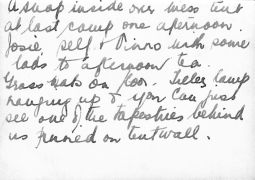 A snap inside our mess tent
at last camp one afternoon.
Josie, self & Pinno with some
lads to afternoon tea.
Grass mats on floor. lamp
hanging up & you can just
see one of the tapestries behind
us pinned on tentwall.